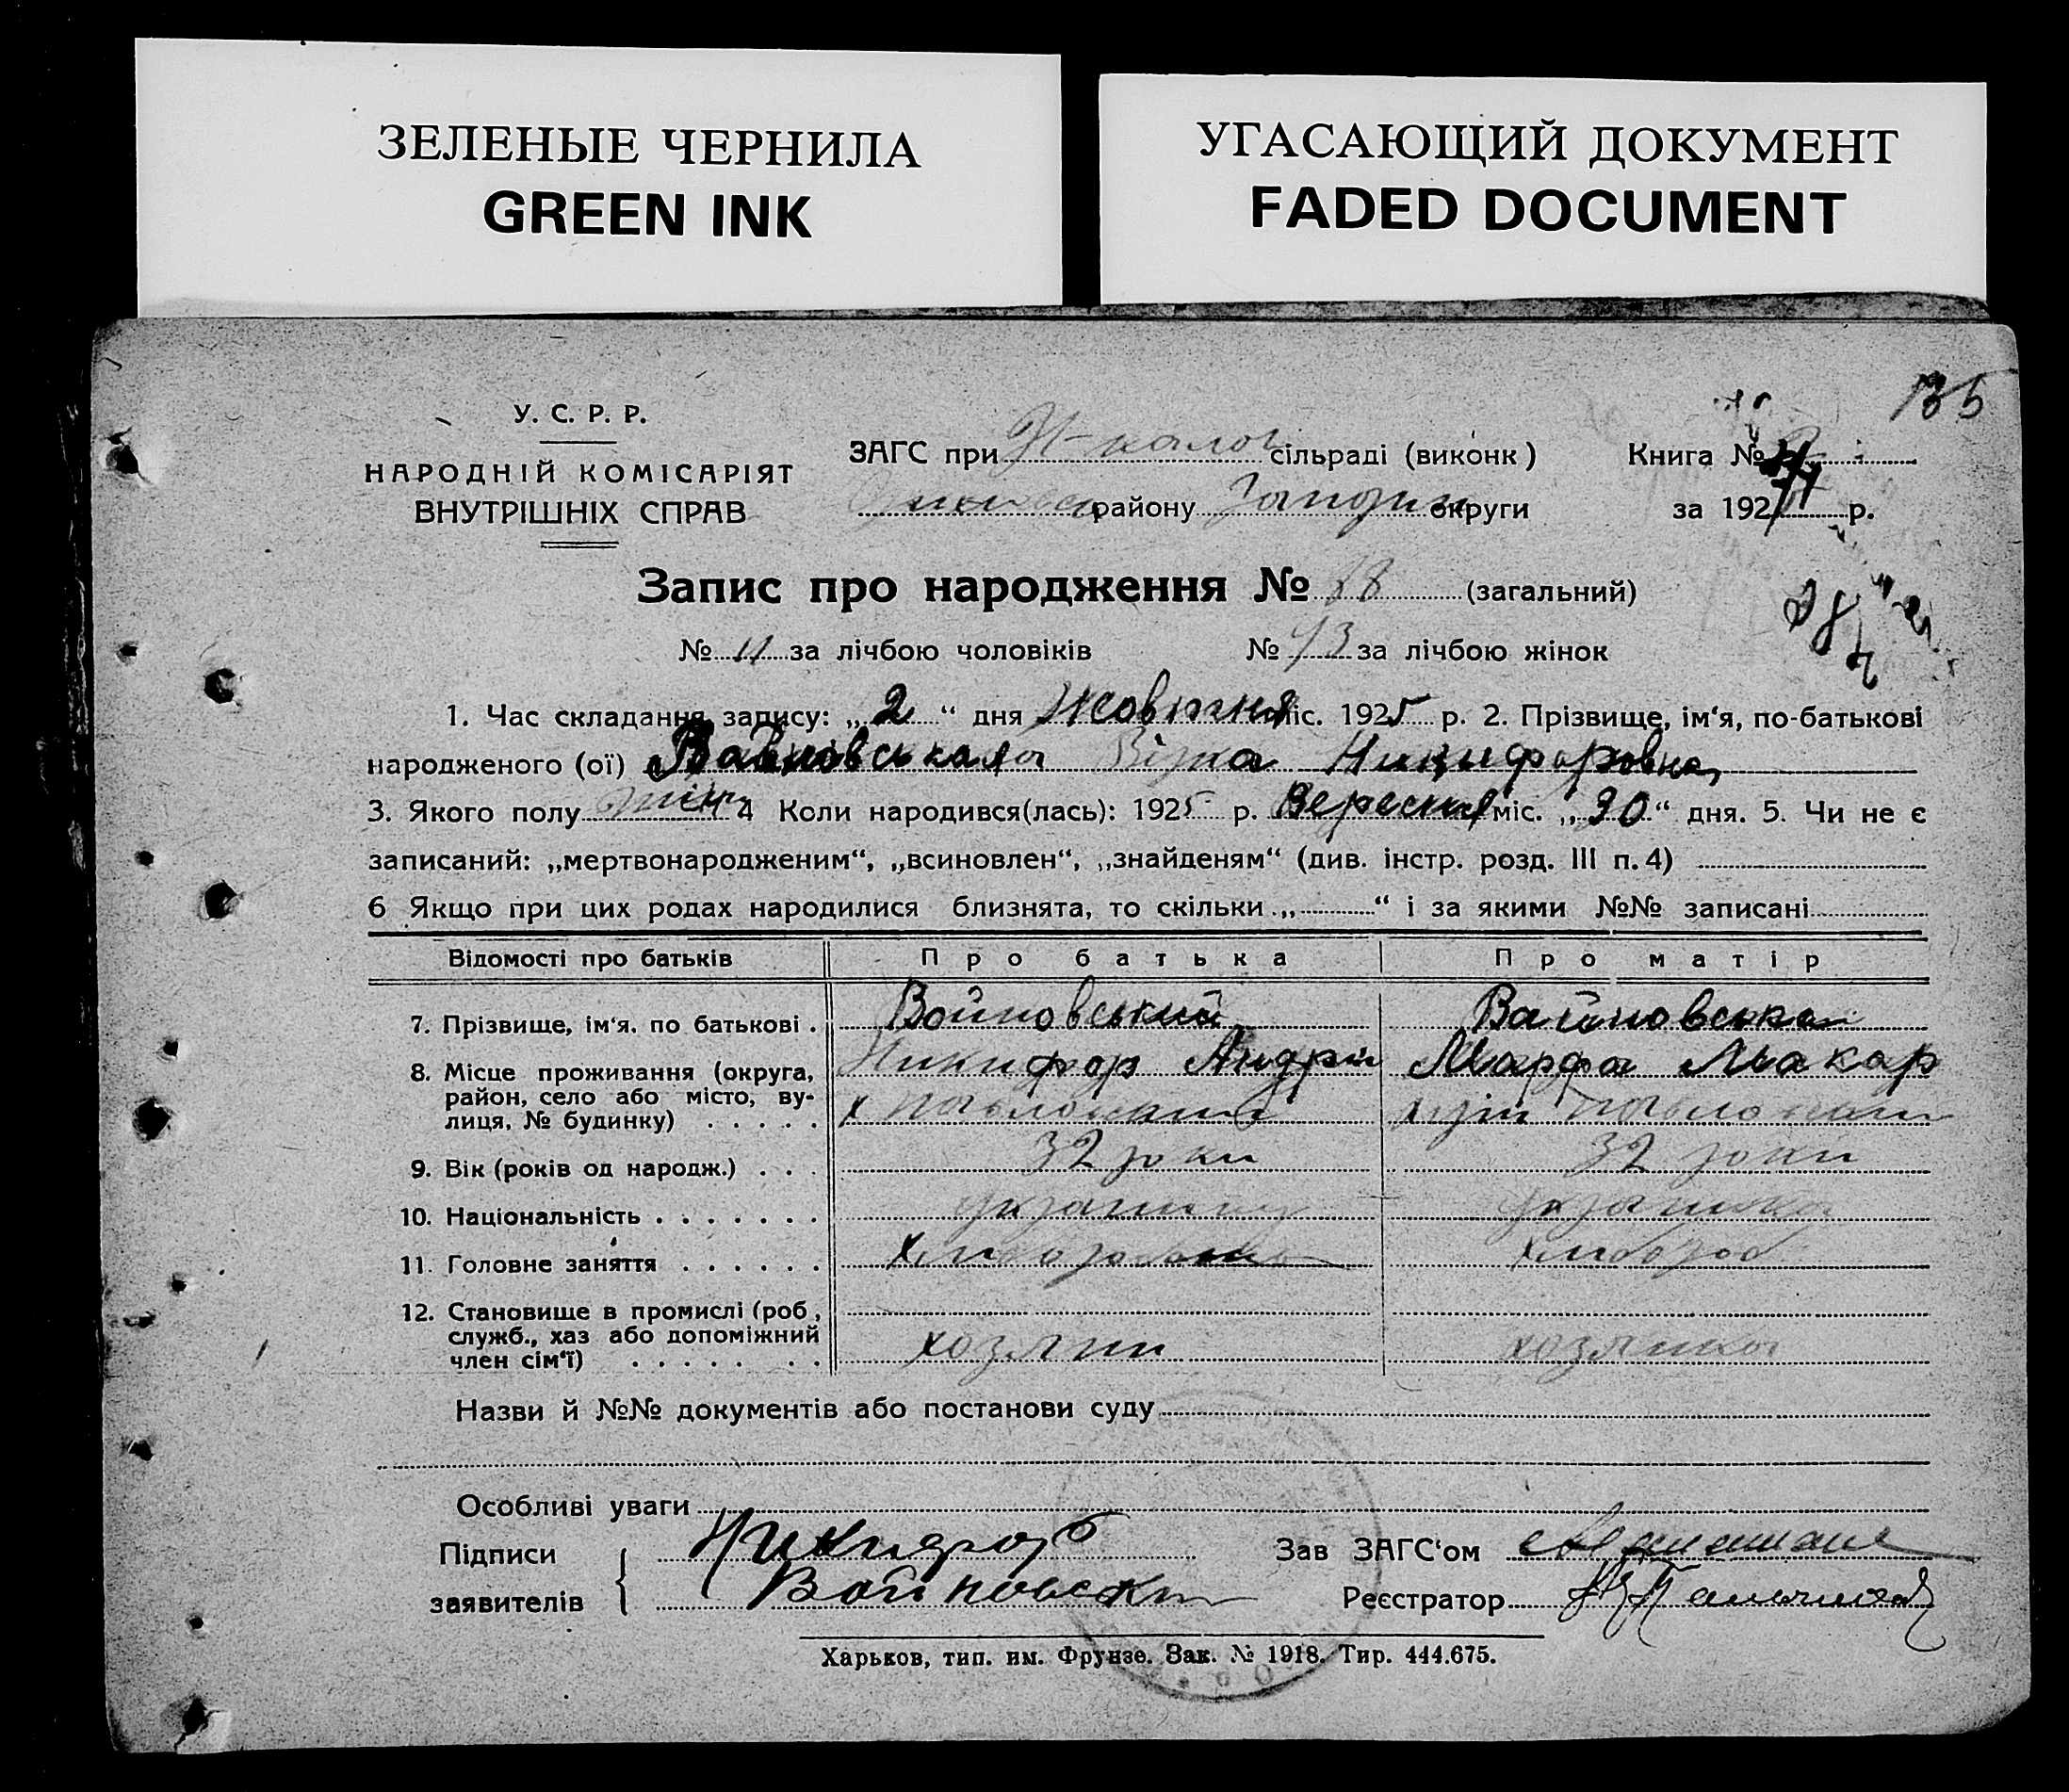 ЗЕЛЕНЫЕ ЧЕРНИЛА
GREEN INK
УГАСАЮЩИЙ ДОКУМЕНТ
FADED DOCUMENT
135
У. С. Р. Р.
НАРОДНІЙ КОМІСАРІЯТ
ВНУТРІШНІХ СПРАВ
ЗАГС при сільраді (виконк)
району округи
Книга №
за 192 р.
Запис про народження № (загальний)
№ 11 за лічбою чоловіків № 43 за лічбою жінок
1. Час складання запису: „2“ дня Жовтня міс. 1925 р. 2. Прізвище, ім'я, по-батькові
народженого (ої) Никифоровна
3. Якого полу жін 4 Коли народився(лась): 1925 р. Вересня міс. „30“ дня. 5. Чи не є
записаний: „мертвонародженим“, „всиновлен“, „знайденям“ (див. інстр. розд. III п. 4)
6 Якщо при цих родах народилися близнята, то скільки „ “ і за якими №№ записані
Відомості про батьків Про батька Про матір
7. Прізвище, ім'я. по батькові . Войновський Вайновська
8. Місце проживання (округа, Никифор Андрій Марфа Макар
район, село або місто, ву-
лиця, № будинку) . . . . . х
9. Вік (років од народж.) . . . 32 роки 32 роки
10. Національність . . . . . . . українка
11. Головне заняття . . . . . . хлибороб
12. Становище в промислі (роб,
служб., хаз або допоміжний
член сім'ї) . . . . . . . хозяин хозяйка
Назви й №№ документів або постанови суду
Особливі уваги
Підписи Никифор Зав ЗАГС'ом
заявителів Реєстратор
Харьков, тип. им. Фрунзе. Зак. № 1918. Тир. 444.675.